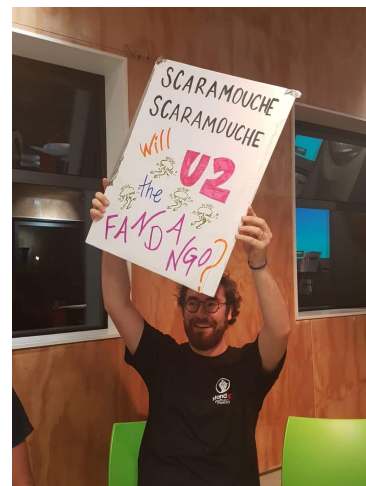 SCARAMOUCHE
SCARAMOUCHE
will U2
the
FANDA
NGO?